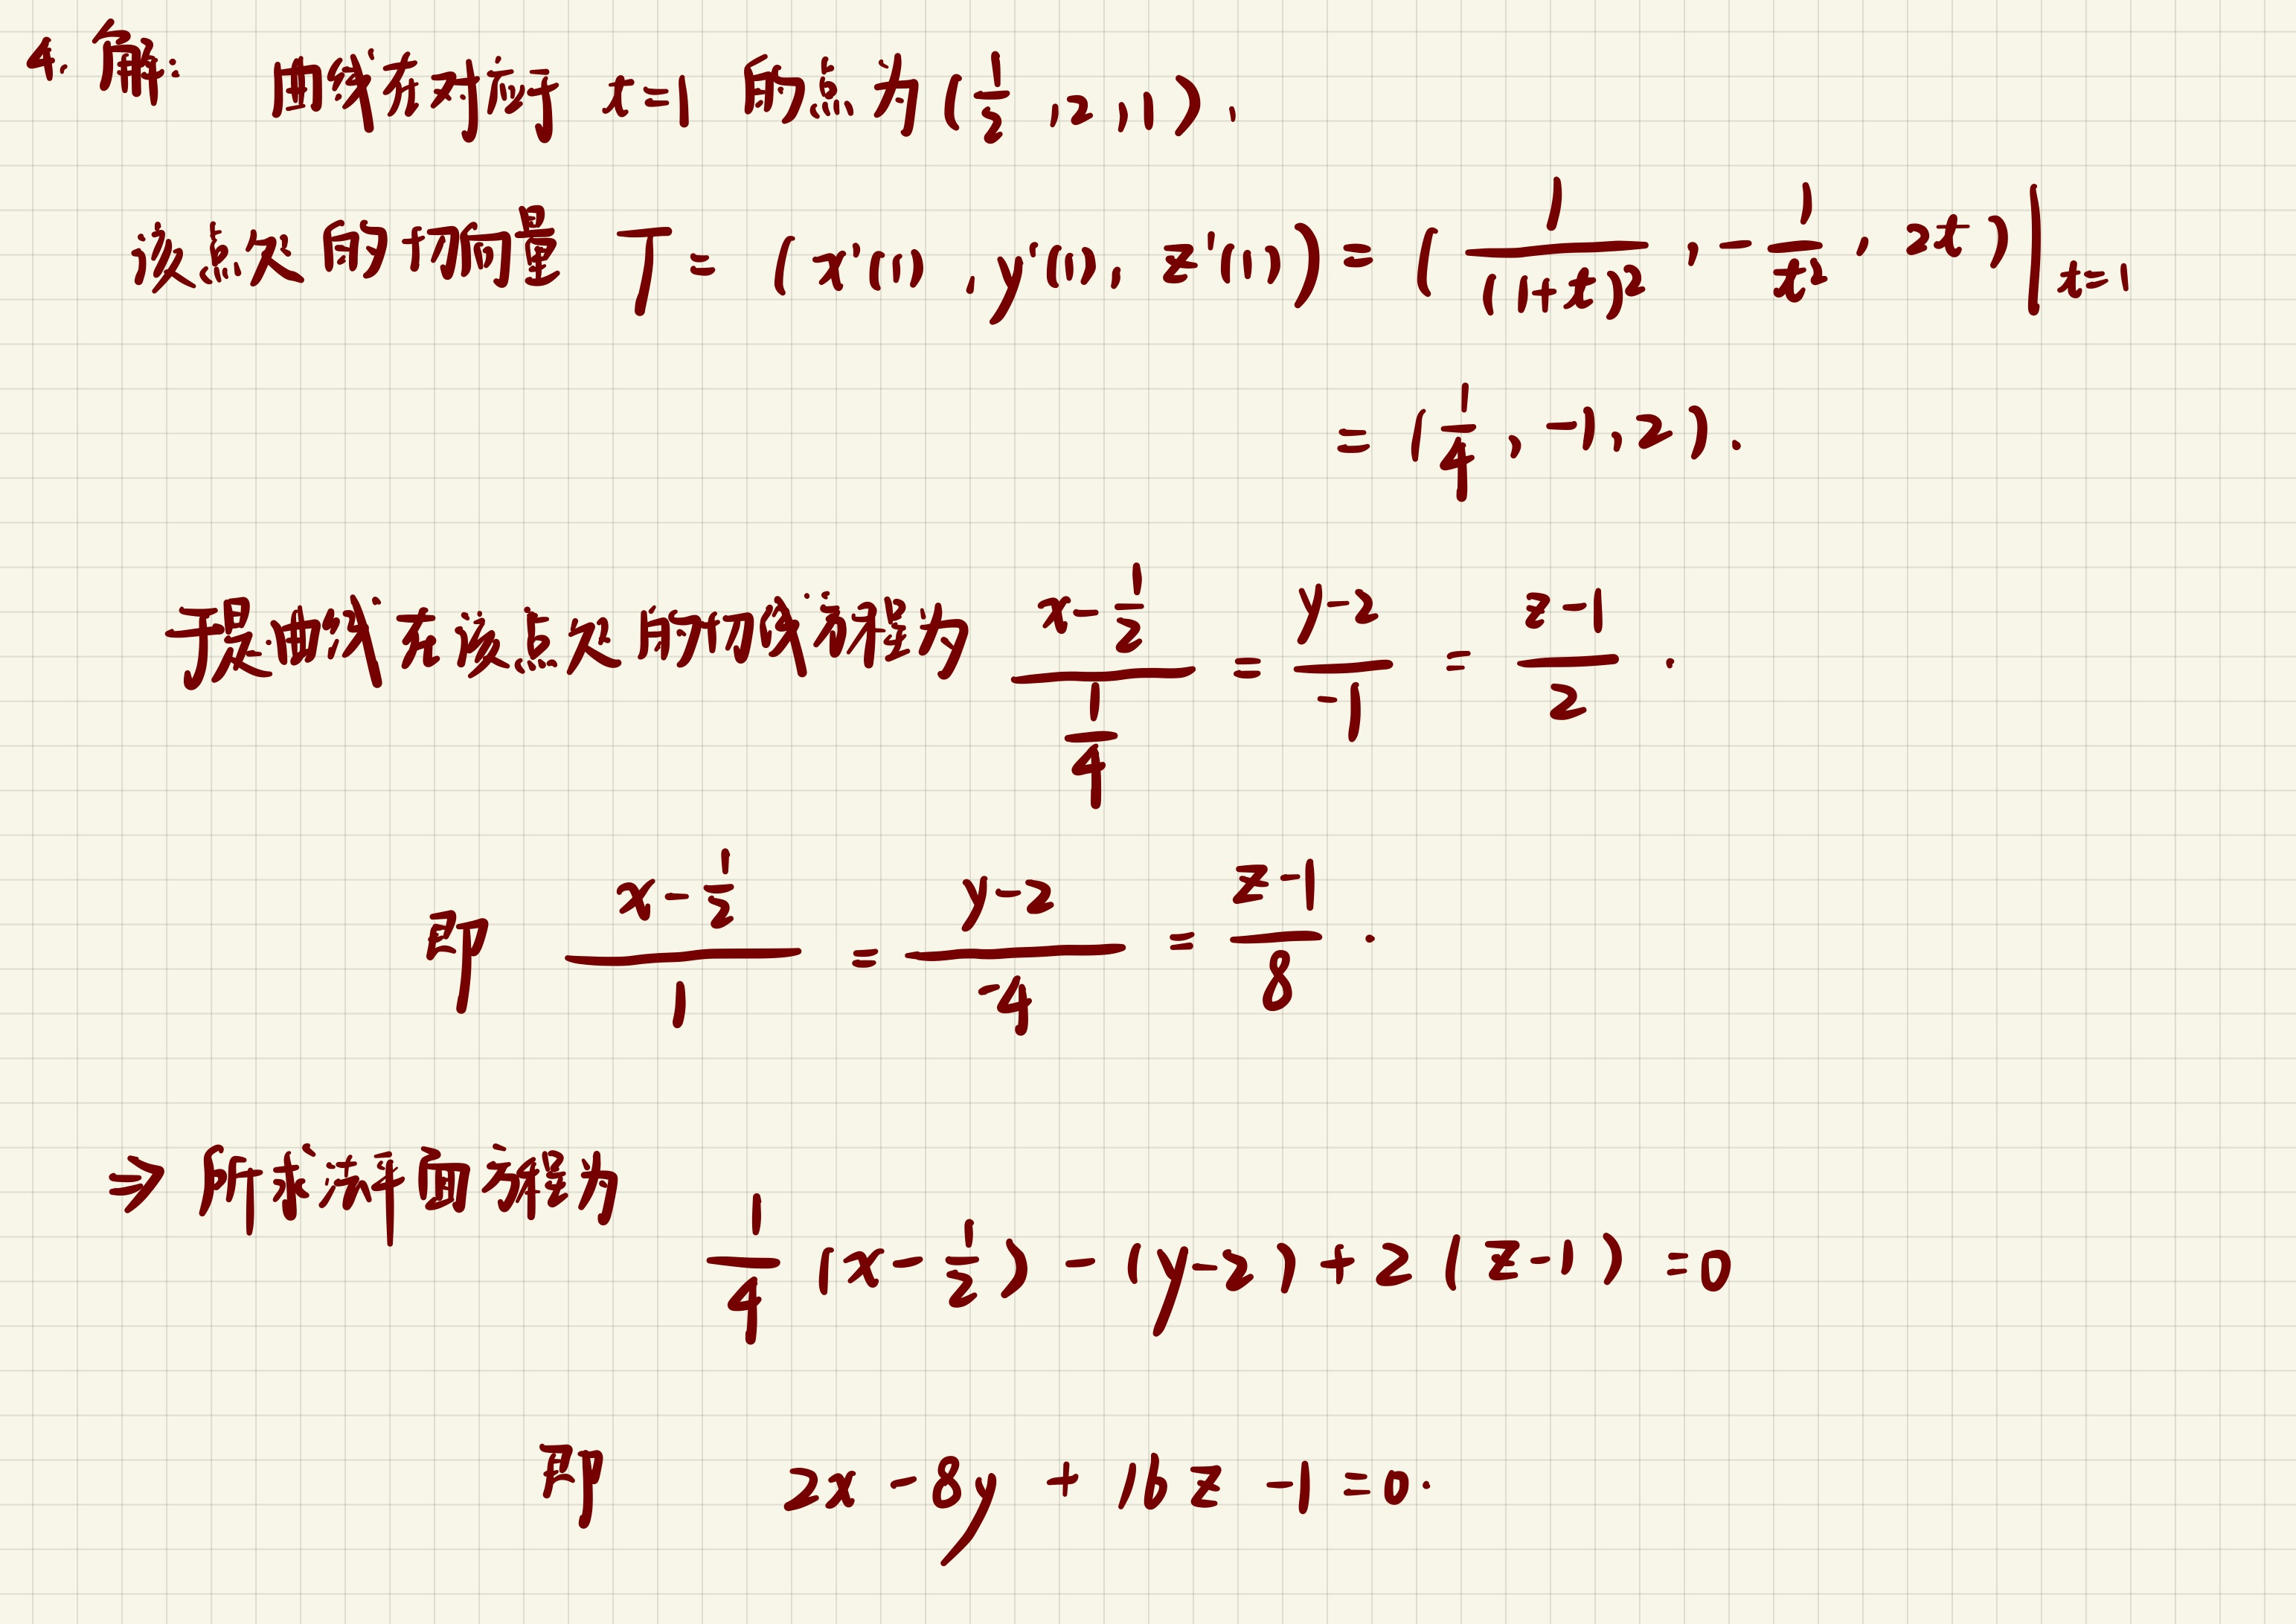 4. 解: 曲线在对应于 t=1 的点为 (1/2, 2, 1),
该点处的切向量 T = (x'(1), y'(1), z'(1)) = (1/(1+t)², -1/t², 2t)|t=1
= (1/4, -1, 2).
于是曲线在该点处的切线方程为 (x-1/2)/(1/4) = (y-2)/(-1) = (z-1)/2.
即 (x-1/2)/1 = (y-2)/(-4) = (z-1)/8.
⇒ 所求法平面方程为
1/4 (x-1/2) - (y-2) + 2(z-1) = 0
即 2x - 8y + 16z - 1 = 0.